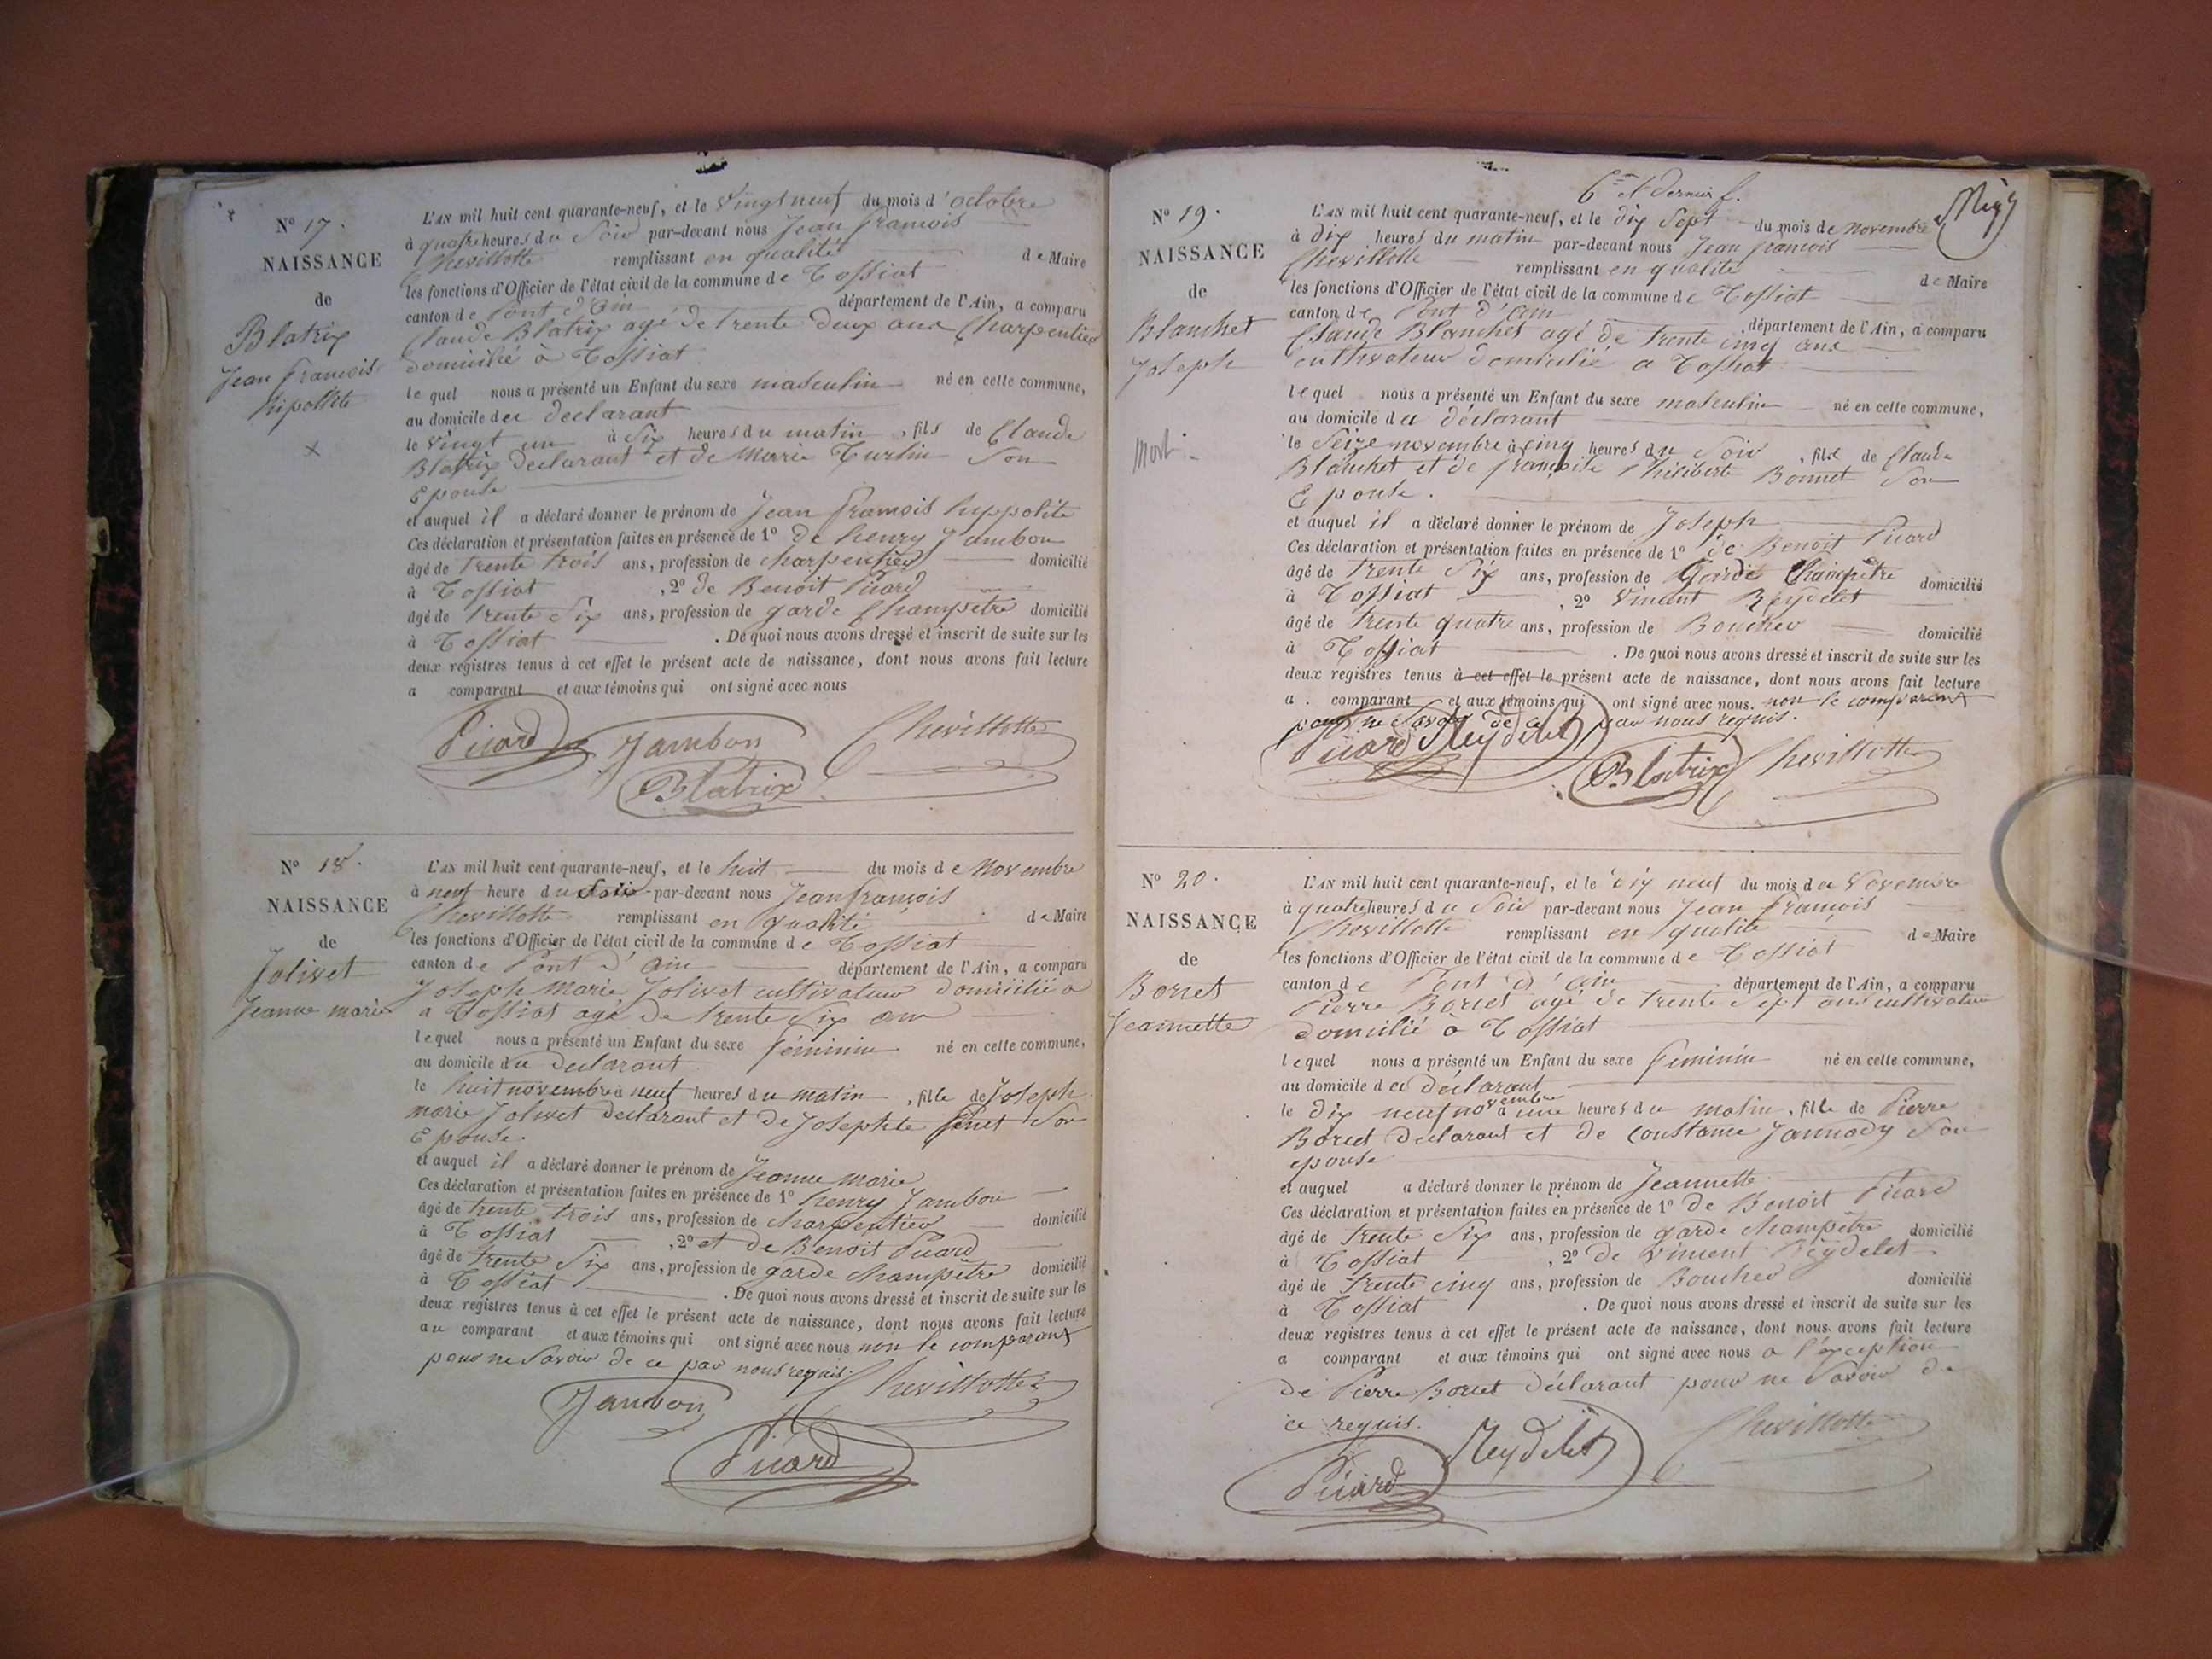 N° 17.
NAISSANCE
de
Blatrix
Jean françois
hipollite
L'AN mil huit cent quarante-neuf, et le vingt neuf du mois d'octobre
à quatre heures du soir par-devant nous Jean françois
Chevillotte remplissant en qualité de Maire
les fonctions d'Officier de l'état civil de la commune de Tossiat
canton de Pont d'ain département de l'Ain, a comparu
Claude Blatrix agé de trente deux ans Charpentier
domicilié à Tossiat
lequel nous a présenté un Enfant du sexe masculin né en cette commune,
au domicile du déclarant
le vingt un à six heures du matin, fils de Claude
Blatrix declarant et de Marie Turlin Son
Epouse
et auquel il a déclaré donner le prénom de Jean françois hyppolite
Ces déclaration et présentation faites en présence de 1° de henry Jambon
âgé de trente trois ans, profession de charpentier domicilié
à Tossiat, 2° de Benoit Picard
âgé de trente Six ans, profession de garde Champetre domicilié
à Tossiat. De quoi nous avons dressé et inscrit de suite sur les
deux registres tenus à cet effet le présent acte de naissance, dont nous avons fait lecture
a comparant et aux témoins qui ont signé avec nous
Picard Jambon Chevillotte
Blatrix
N° 18.
NAISSANCE
de
Jolivet
Jeanne marie
L'AN mil huit cent quarante-neuf, et le huit du mois de Novembre
à neuf heure du Soir par-devant nous Jean françois
Chevillotte remplissant en qualité de Maire
les fonctions d'Officier de l'état civil de la commune de Tossiat
canton de Pont d'ain département de l'Ain, a comparu
Joseph Marie Jolivet cultivateur domicilié a
a Tossiat agé de trente Six ans
lequel nous a présenté un Enfant du sexe féminin né en cette commune,
au domicile du declarant
le huit novembre à neuf heures du matin, fille de Joseph
marie Jolivet declarant et de Josephte Son
Epouse.
et auquel il a déclaré donner le prénom de Jeanne Marie
Ces déclaration et présentation faites en présence de 1° henry Jambon
âgé de trente trois ans, profession de charpentier domicilié
à Tossiat, 2° et de Benoit Picard
âgé de trente Six ans, profession de garde champêtre domicilié
à Tossiat. De quoi nous avons dressé et inscrit de suite sur les
deux registres tenus à cet effet le présent acte de naissance, dont nous avons fait lecture
au comparant et aux témoins qui ont signé avec nous non le comparant
pour ne Savoir de ce par nous requis.
Jambon Chevillotte
Picard
6me et dernier f.
N° 19.
NAISSANCE
de
Blanchet
Joseph
Mort
L'AN mil huit cent quarante-neuf, et le dix Sept du mois de novembre
à dix heures du matin par-devant nous Jean françois
Chevillotte remplissant en qualité de Maire
les fonctions d'Officier de l'état civil de la commune de Tossiat
canton de Pont d'ain département de l'Ain, a comparu
Claude Blanchet agé de trente cinq ans
cultivateur domicilié a Tossiat
lequel nous a présenté un Enfant du sexe masculin né en cette commune,
au domicile du déclarant
le Seize novembre à cinq heures du Soir, fils de Claude
Blanchet et de françoise Philiberte Bonnet Son
Epouse.
et auquel il a déclaré donner le prénom de Joseph
Ces déclaration et présentation faites en présence de 1° de Benoit Picard
âgé de trente Six ans, profession de Garde Champêtre domicilié
à Tossiat, 2° Vincent Reydelet
âgé de trente quatre ans, profession de Boucher domicilié
à Tossiat. De quoi nous avons dressé et inscrit de suite sur les
deux registres tenus à cet effet le présent acte de naissance, dont nous avons fait lecture
a comparant et aux témoins qui ont signé avec nous. non le comparant
pour ne Savoir de ce par nous requis.
Picard Reydelet
Blatrix Chevillotte
N° 20.
NAISSANCE
de
Borret
Jeannette
L'AN mil huit cent quarante-neuf, et le dix neuf du mois de Novembre
à quatre heures du Soir par-devant nous Jean françois
Chevillotte remplissant en qualité de Maire
les fonctions d'Officier de l'état civil de la commune de Tossiat
canton de Pont d'ain département de l'Ain, a comparu
Pierre Borret agé de trente Sept ans cultivateur
domicilié à Tossiat
lequel nous a présenté un Enfant du sexe feminin né en cette commune,
au domicile du déclarant
le dix neuf novembre à une heures du matin, fille de Pierre
Borret declarant et de Constance Jannody Son
epouse
et auquel a déclaré donner le prénom de Jeannette
Ces déclaration et présentation faites en présence de 1° de Benoit Picard
âgé de trente Six ans, profession de garde champêtre domicilié
à Tossiat, 2° de Vincent Reydelet
âgé de trente cinq ans, profession de Boucher domicilié
à Tossiat. De quoi nous avons dressé et inscrit de suite sur les
deux registres tenus à cet effet le présent acte de naissance, dont nous avons fait lecture
a comparant et aux témoins qui ont signé avec nous a l'exception
de Pierre Borret déclarant pour ne Savoir de
ce requis.
Picard Reydelet Chevillotte